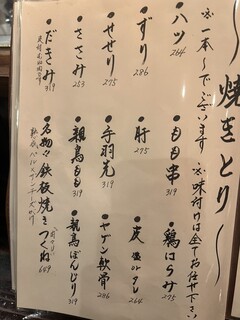 〜焼きとり〜
※一本〜でございます ※味付けは全てお任せ下さい
・ハツ 264
・ずり 286
・せせり 275
・ささみ 253
・だきみ 319
・もも串 319
・肝 275
・手羽先 319
・親鳥もも 319
・名物 鉄板焼きつくね 649
・鶏はらみ 275
・皮 塩orタレ 264
・ヤゲン軟骨 286
・親鳥ぼんじり 319